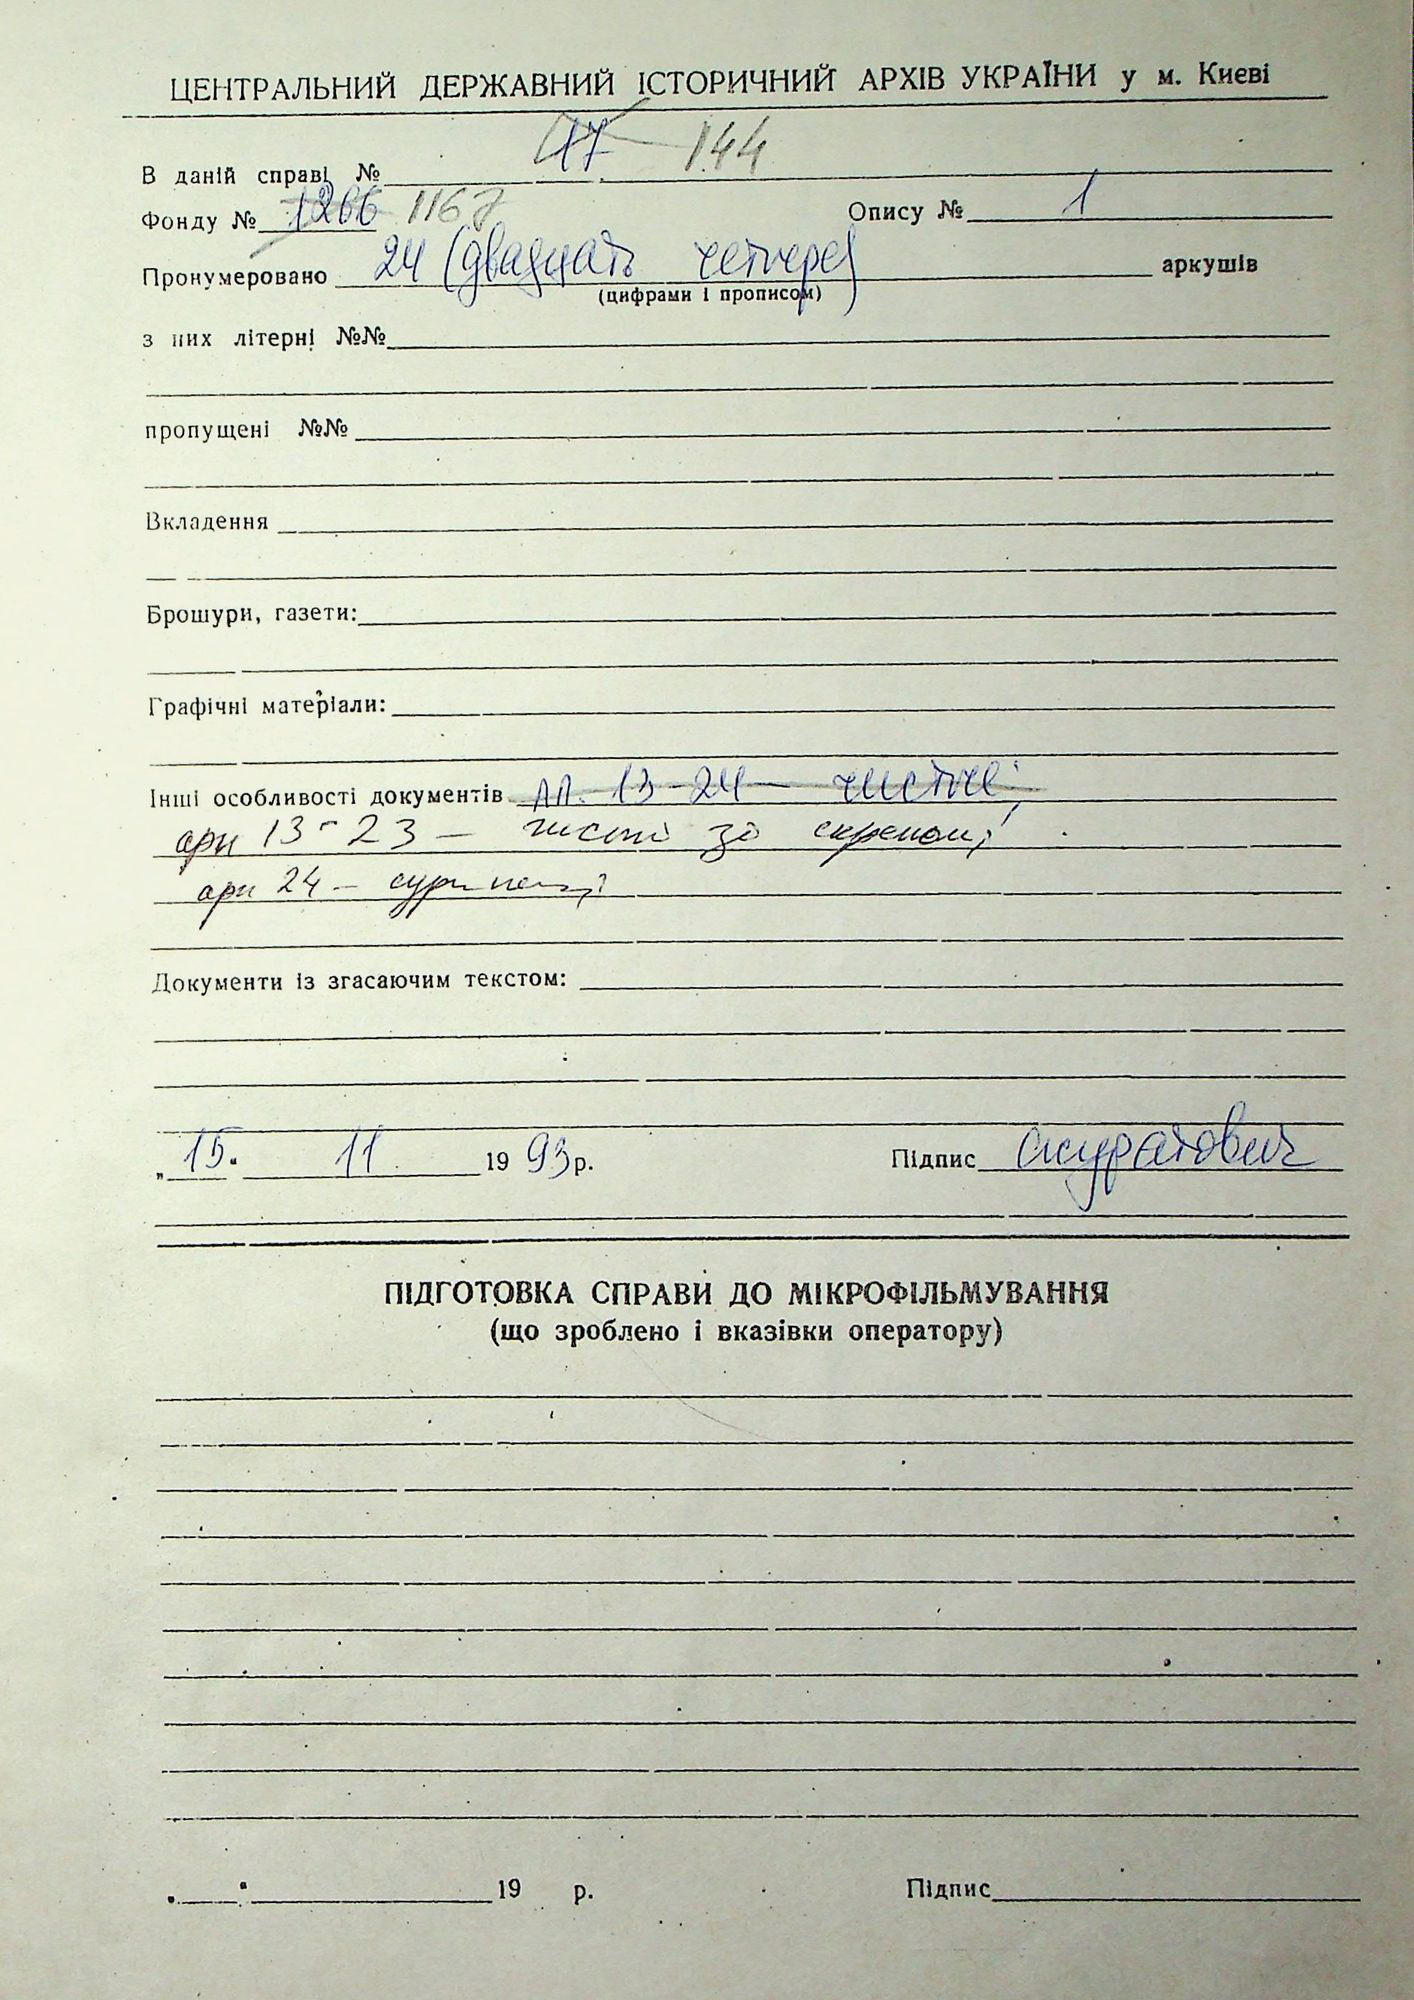 ЦЕНТРАЛЬНИЙ ДЕРЖАВНИЙ ІСТОРИЧНИЙ АРХІВ УКРАЇНИ у м. Києві
В даній справі № 17 144
Фонду № 1266 1167 Опису № 1
Пронумеровано 24 (двадцать четыре) аркушів
(цифрами і прописом)
з них літерні №№
пропущені №№
Вкладення
Брошури, газети:
Графічні матеріали:
Інші особливості документів лл. 13-24 - чисті;
арк 13-23 - чисті зі скрепою;
арк 24 -
Документи із згасаючим текстом:
„15“ 11. 1993 р. Підпис Скуратович
ПІДГОТОВКА СПРАВИ ДО МІКРОФІЛЬМУВАННЯ
(що зроблено і вказівки оператору)
19 р. Підпис